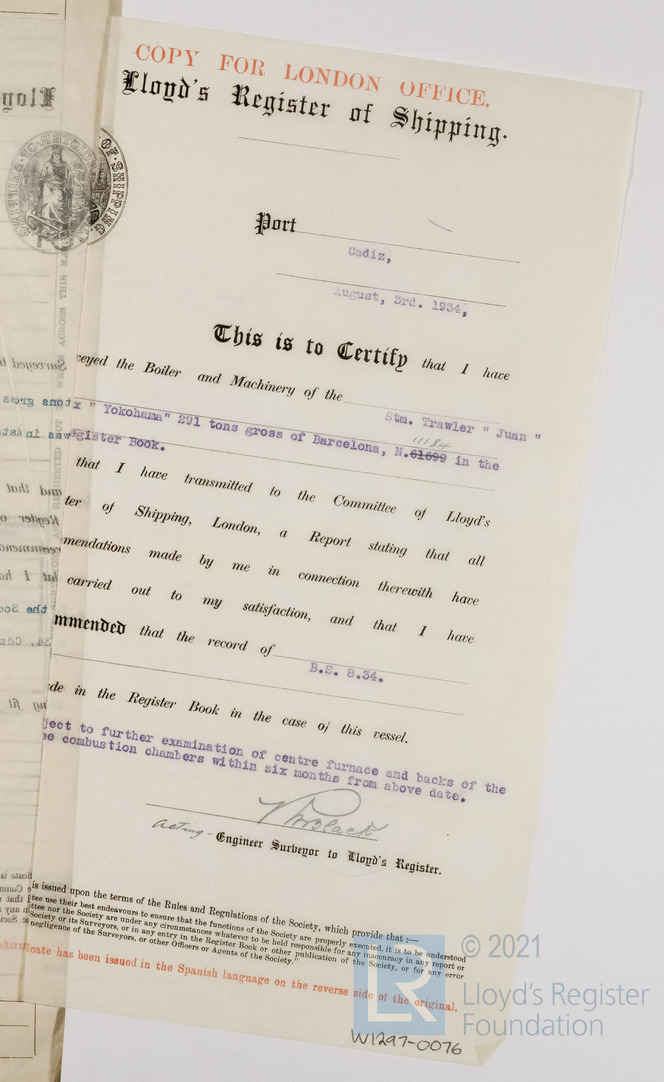 COPY FOR LONDON OFFICE.
Lloyd's Register of Shipping.
Port
Cadiz,
August, 3rd. 1934,
This is to Certify that I have
veyed the Boiler and Machinery of the
Stm. Trawler " Juan "
x " Yokohama" 291 tons gross of Barcelona, N.61699 in the
11184
gister Book.
that I have transmitted to the Committee of Lloyd's
ter of Shipping, London, a Report stating that all
mendations made by me in connection therewith have
carried out to my satisfaction, and that I have
mmended that the record of
B.S. 8.34.
de in the Register Book in the case of this vessel.
ject to further examination of centre furnace and backs of the
ee combustion chambers within six months from above date.
acting - Engineer Surveyor to Lloyd's Register.
is issued upon the terms of the Rules and Regulations of the Society, which provide that :—
ttee use their best endeavours to ensure that the functions of the Society are properly executed, it is to be understood
ttee nor the Society are under any circumstances whatever to be held responsible for any inaccuracy in any report or
Society or its Surveyors, or in any entry in the Register Book or other publication of the Society, or for any error
negligence of the Surveyors, or other Officers or Agents of the Society."
ificate has been issued in the Spanish language on the reverse side of the original.
© 2021
LR
Lloyd's Register
Foundation
W1297-0076